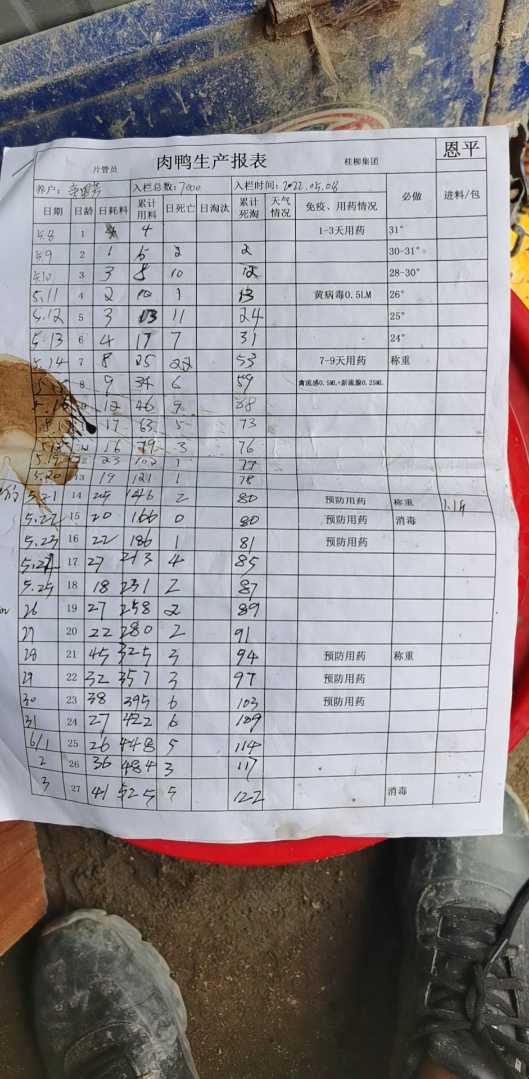 恩平
片管员 肉鸭生产报表 桂柳集团
养户: 入栏总数:7000 入栏时间:2022.05.08 必做 进料/包
日期 日龄 日耗料 累计用料 日死亡 日淘汰 累计死淘 天气情况 免疫、用药情况
5.8 1 4 1-3天用药 31°
5.9 2 1 5 2 2 30-31°
5.10 3 3 8 10 12 28-30°
5.11 4 2 10 1 13 黄病毒0.5LM 26°
5.12 5 3 13 11 24 25°
5.13 6 4 17 7 31 24°
5.14 7 8 25 22 53 7-9天用药 称重
8 9 34 6 59 禽流感0.5ML+新流腺0.25ML
12 46 9 68
17 63 5 73
16 79 3 76
23 102 1 77
5.20 13 19 121 1 78
5.21 14 25 146 2 80 预防用药 称重
5.22 15 20 166 0 80 预防用药 消毒
5.23 16 22 186 1 81 预防用药
5.24 17 27 213 4 85
5.25 18 18 231 2 87
26 19 27 258 2 89
27 20 22 280 2 91
28 21 45 325 3 94 预防用药 称重
29 22 32 357 3 97 预防用药
30 23 38 395 6 103 预防用药
31 24 27 422 6 109
6/1 25 26 448 5 114
2 26 36 484 3 117
3 27 41 525 5 122 消毒